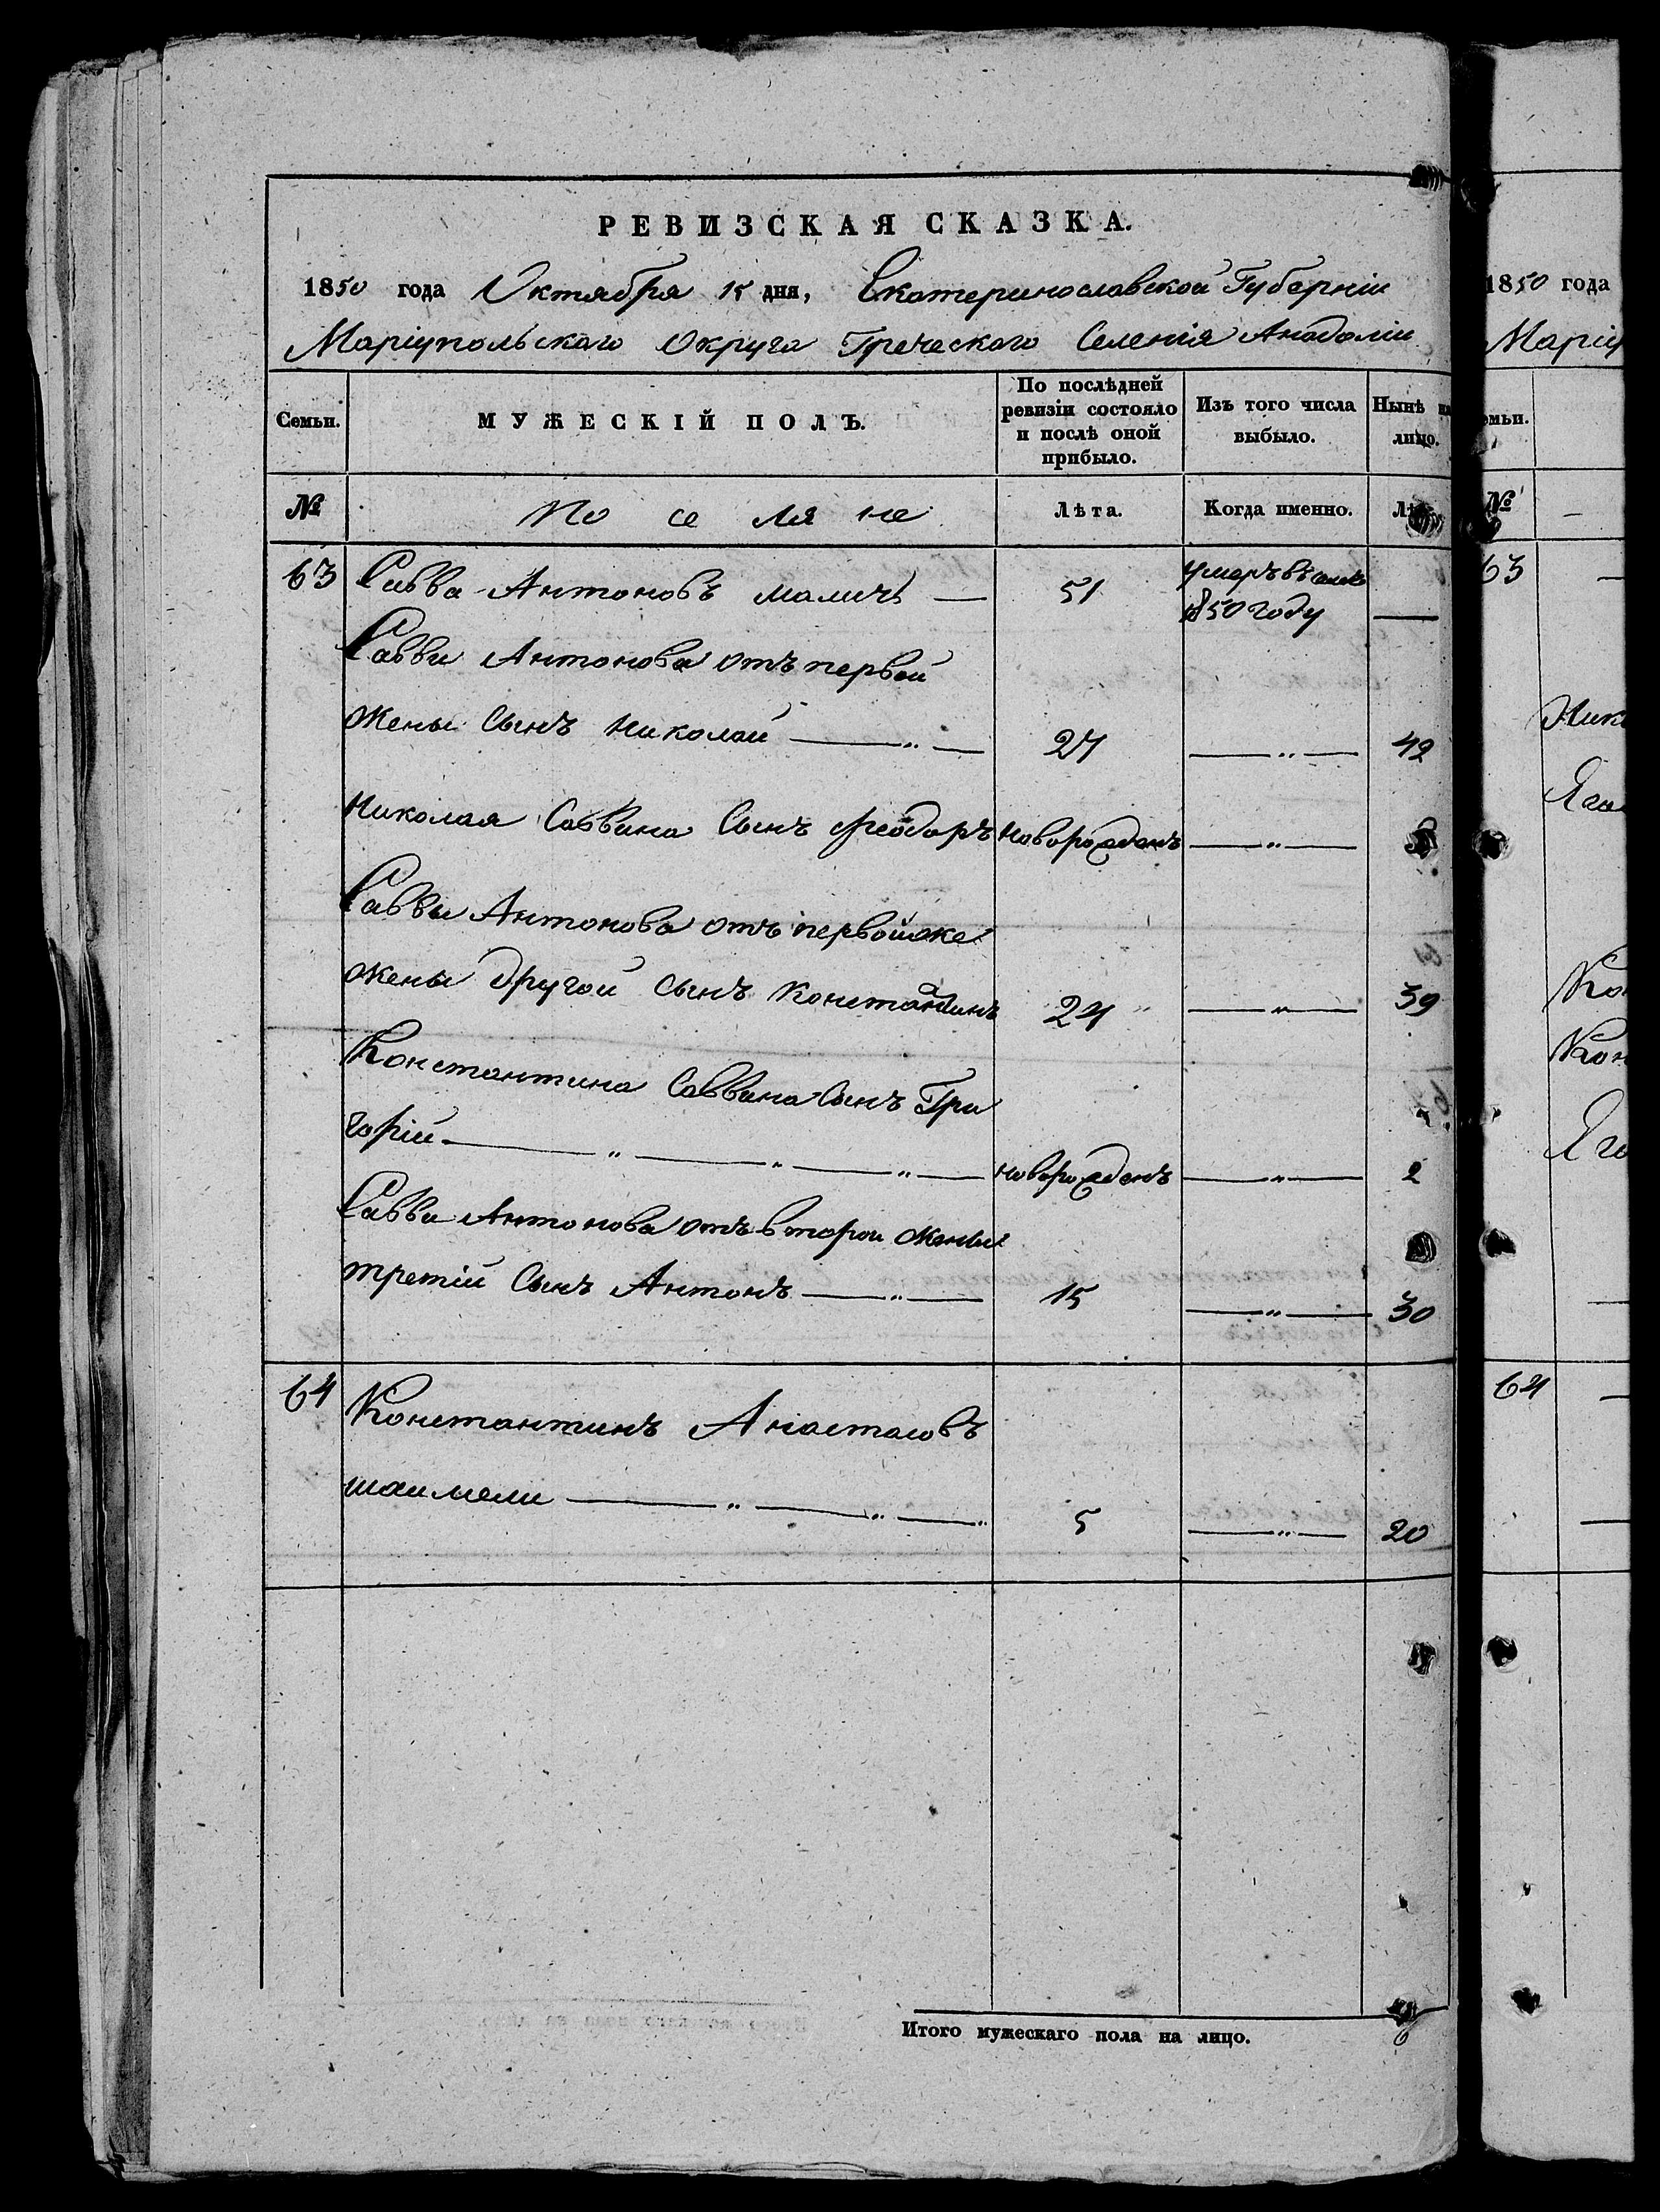 РЕВИЗСКАЯ СКАЗКА.
1850 года Октября 15 дня, Екатеринославской Губерніи
Маріупольскаго Округа Греческаго Селенія Анадоліи
Семьи.
МУЖЕСКІЙ ПОЛЪ.
По послѣдней
ревизіи состояло
и послѣ оной
прибыло.
Изъ того числа
выбыло.
Нынѣ на
лицо.
№
По се ля не
Лѣта.
Когда именно.
63 Савва Антоновъ Маличь — 51 умеръ въ
1850 году —
Савви Антонова отъ первой
жены Сынъ Николай — " — 27 — " — 42
Николая Саввина Сынъ Феодоръ Новорожденъ — " —
Саввы Антонова отъ первойже
жены другой Сынъ Константинъ 24 — " — 39
Константина Саввина Сынъ Гри
горій — " — " — " — новорожденъ — " — 2
Савва Антонова отъ второи жены
третій Сынъ Антонъ — " — 15 — " — 30
64 Константинъ Анастасовъ
шаимели — " — " — " 5 — " — 20
Итого мужескаго пола на лицо. 6
1850 года
Маріу
емьи.
№
63
Нико
Яга
Ко
Кон
Яго
64